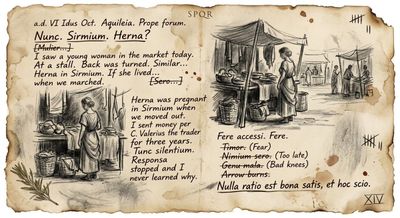 SPQR
a.d. VI Idus Oct. Aquileia. Prope forum.
Nunc. Sirmium. Herna?
[Mulier...]
I saw a young woman in the market today.
At a stall. Back was turned. Similar...
Herna in Sirmium. If she lived...
when we marched. [Sero....]
Herna was pregnant
in Sirmium when
we moved out.
I sent money per
C. Valerius the trader
for three years.
Tunc silentium.
Responsa
stopped and I
never learned why.
Fere accessi. Fere.
Timor. (Fear)
Nimium sero. (Too late)
Genu mala. (Bad knees)
Arrow burns.
Nulla ratio est bona satis, et hoc scio.
XIV